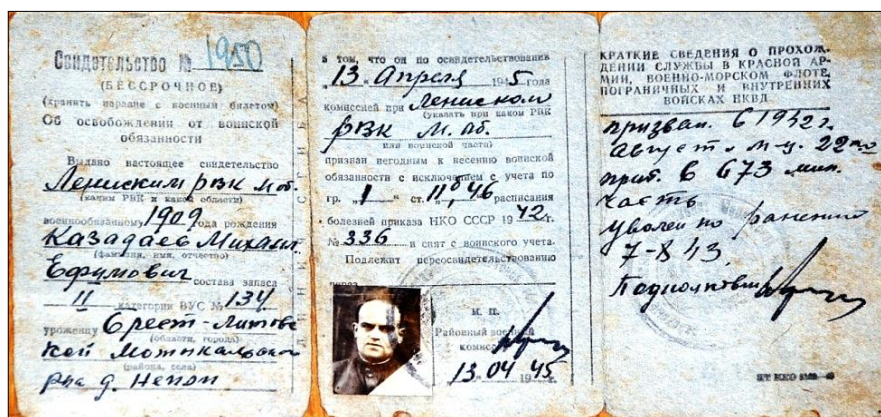 Свидетельство № 1950
(БЕССРОЧНОЕ)
(хранить наравне с военным билетом)
Об освобождении от воинской
обязанности
Выдано настоящее свидетельство
Ленинским рвк м об.
(каким РВК и какой области)
военнообязанному 1909 года рождения
Казадаев Михаил
(фамилия, имя, отчество)
Ефимович состава запаса
II категории ВУС № 134
уроженцу Брест-Литов
(области, города)
ской
(района, села)
д.
в том, что он по освидетельствовании
"13" Апреля 1945 года
комиссией при Ленинском
(указать при каком РВК
РВК М. об.
или воинской части)
признан негодным к несению воинской
обязанности с исключением с учета по
гр. 1 ст. 11 46 расписания
болезней приказа НКО СССР 1942 г.
№ 336 и снят с воинского учета.
Подлежит переосвидетельствованию
через
М. П.
Районный военный
комиссар
13.04 1945.
КРАТКИЕ СВЕДЕНИЯ О ПРОХОЖ-
ДЕНИИ СЛУЖБЫ В КРАСНОЙ АР-
МИИ, ВОЕННО-МОРСКОМ ФЛОТЕ,
ПОГРАНИЧНЫХ И ВНУТРЕННИХ
ВОЙСКАХ НКВД
призван в 1942 г.
август м-ц 22
в 673 мин.
часть
уволен по ранению
7-8 43
Подполковник